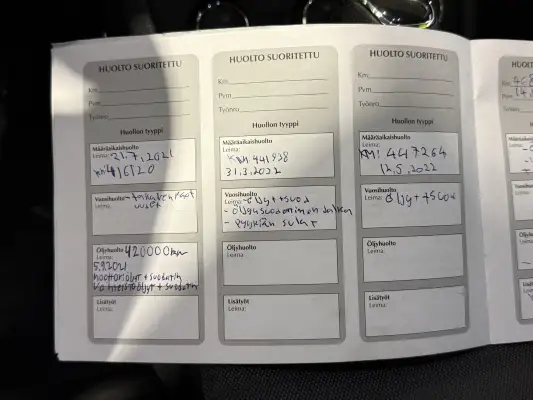 HUOLTO SUORITETTU
Km
Pvm
Työnro
Huollon tyyppi
Määräaikaishuolto
Leima: 21.7.2021
KM 416120
Vuosihuolto
uudet
Öljyhuolto 420000km
Leima:
5.9.2021
moottoriöljyt + suodatin
Vaihteistoöljyt + suodatin
Lisätyöt
Leima:
HUOLTO SUORITETTU
Km
Pvm
Työnro
Huollon tyyppi
Määräaikaishuolto
Leima:
KM 441938
31.3.2022
Vuosihuolto - öljyt + suod
Leima:
- öljynsuodattimen
- pyyhkijän sulat
Öljyhuolto
Leima:
Lisätyöt
Leima:
HUOLTO SUORITETTU
Km
Pvm
Työnro
Huollon tyyppi
Määräaikaishuolto
Leima:
KM: 447264
12.5.2022
Vuosihuolto
Leima: öljyt + suod
Öljyhuolto
Leima:
Lisätyöt
Leima: